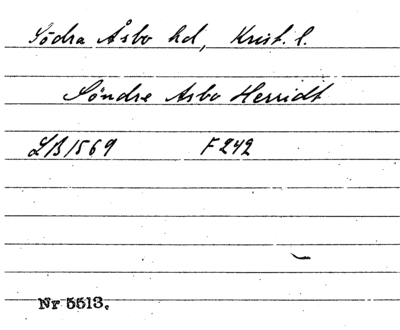 Södra Åsbo hd, Krist. l.
Söndre Asbo Herridt
LB 1569 F 242
Nr 5513.